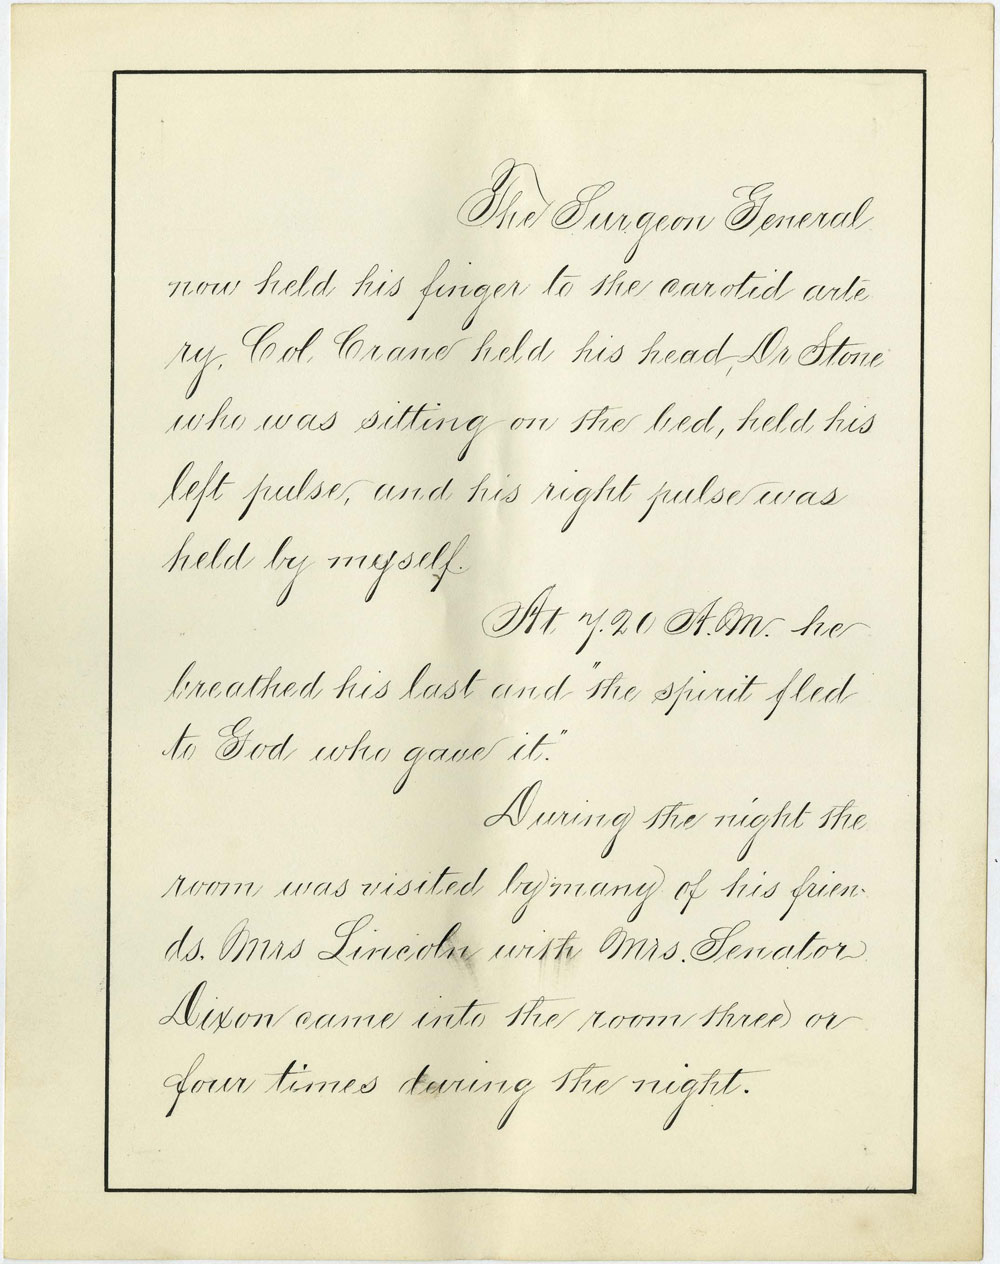 The Surgeon General
now held his finger to the carotid arte
ry, Col. Crane held his head, Dr Stone
who was sitting on the bed, held his
left pulse, and his right pulse was
held by myself.
At 7.20 A.M. he
breathed his last and "the spirit fled
to God who gave it."
During the night the
room was visited by many of his frien-
ds. Mrs Lincoln with Mrs. Senator
Dixon came into the room three or
four times during the night.